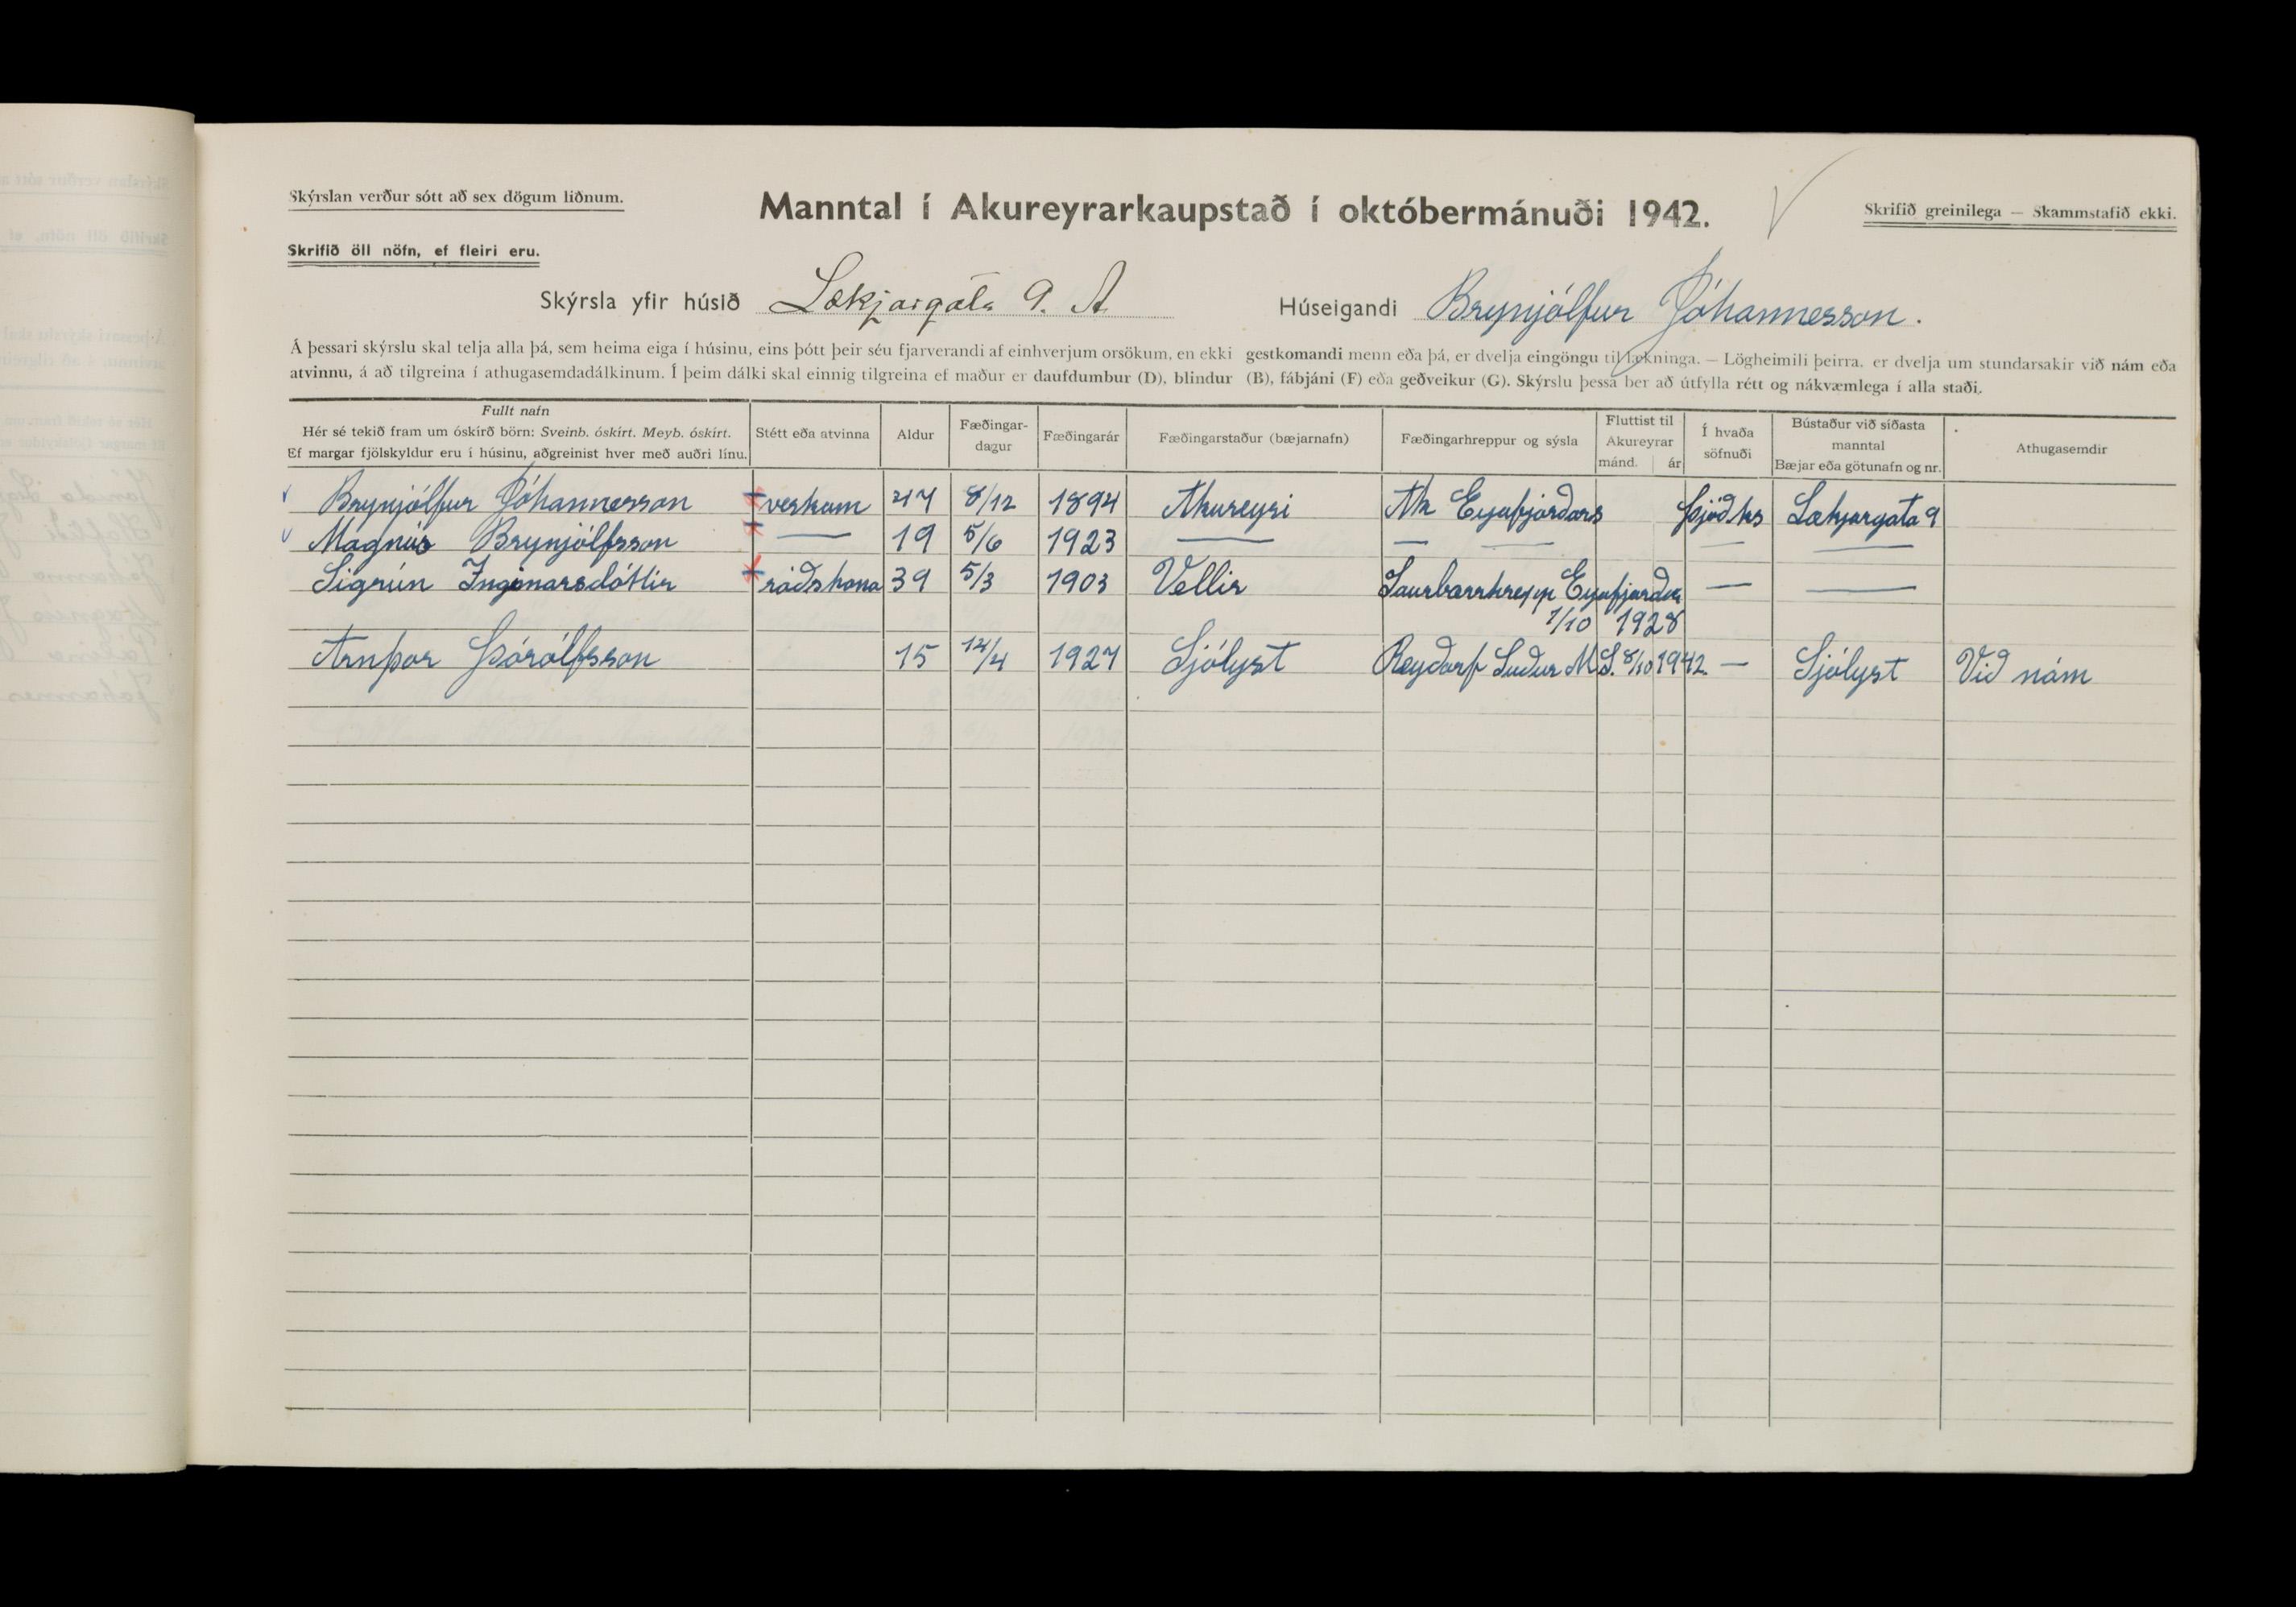 Skýrslan verður sótt að sex dögum liðnum.
Manntal í Akureyrarkaupstað í októbermánuði 1942.
Skrifið greinilega — Skammstafið ekki.
Skrifið öll nöfn, ef fleiri eru.
Skýrsla yfir húsið Lækjargata 9. A
Húseigandi Brynjólfur Jóhannesson.
Á þessari skýrslu skal telja alla þá, sem heima eiga í húsinu, eins þótt þeir séu fjarverandi af einhverjum orsökum, en ekki gestkomandi menn eða þá, er dvelja eingöngu til lækninga. — Lögheimili þeirra, er dvelja um stundarsakir við nám eða
atvinnu, á að tilgreina í athugasemdadálkinum. Í þeim dálki skal einnig tilgreina ef maður er daufdumbur (D), blindur (B), fábjáni (F) eða geðveikur (G). Skýrslu þessa ber að útfylla rétt og nákvæmlega í alla staði.
Fullt nafn
Hér sé tekið fram um óskírð börn: Sveinb. óskírt. Meyb. óskírt.
Ef margar fjölskyldur eru í húsinu, aðgreinist hver með auðri línu.
Stétt eða atvinna
Aldur
Fæðingar-
dagur
Fæðingarár
Fæðingarstaður (bæjarnafn)
Fæðingarhreppur og sýsla
Fluttist til
Akureyrar
mánd. ár
Í hvaða
söfnuði
Bústaður við síðasta
manntal
Bæjar eða götunafn og nr.
Athugasemdir
Brynjólfur Jóhannesson verkam 47 8/12 1894 Akureyri Ak Eyjafjarðars Þjóðks Lækjargata 9
Magnús Brynjólfsson — 19 5/6 1923 — — — — —
Sigrún Ingimarsdóttir ráðskona 39 5/3 1903 Vellir Saurbæarhrepp Eyjafjarðar — —
1/10 1928
Arnþor Þórólfsson 15 12/4 1927 Sjólyst Reyðarf Suður M.S. 8/10 1942 — Sjólyst Við nám